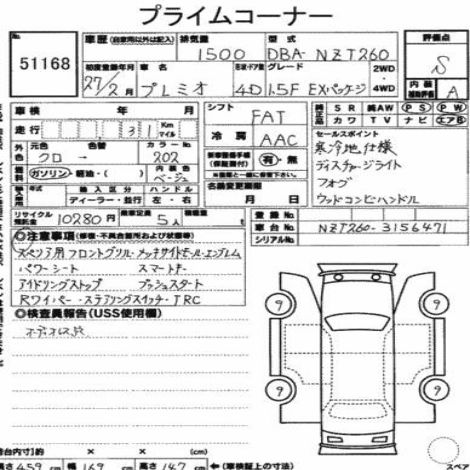 プライムコーナー
No. 51168
車歴 (自家用以外は記入) 排気量 1500 型式 DBA-NZT260
評価点 S
初度登録年月 27/2月 車名 プレミオ 4D グレード 1.5F EXパッケージ 2WD・4WD
内装 補助評価 A
車検 年 月
シフト FAT
純正 SR 純AW PS PW
カワ TV ナビ エアB
走行 31 Km マイル
冷房 AAC
セールスポイント
寒冷地仕様
ディスチャージライト
フォグ
ウッドコンビハンドル
外色 元色 クロ → 色替 カラーNo. 202
燃料 ガソリン・軽油・( ) 内装色 ベージュ
新車整備手帳 (保証書付) 有・無
名義変更期限 月 日
輸入車 年式 輸入区分 ハンドル
ディーラー・並行 左・右
リサイクル預託金 10280円 乗車定員 5人
登録No.
車台No. NZT260-3156471
シリアルNo.
◎注意事項 (修復・不具合箇所および状態等)
スペリア用フロントグリル・メッキサイドモール・エンブレム
パワーシート スマートキー
アイドリングストップ プッシュスタート
Rワイパー・ステアリングスイッチ・TRC
◎検査員報告 (USS使用欄)
9 9
9 9
荷台内寸 約 × × (cm)
長さ 459 cm 幅 169 cm 高さ 147 cm ←(車検証上の寸法)